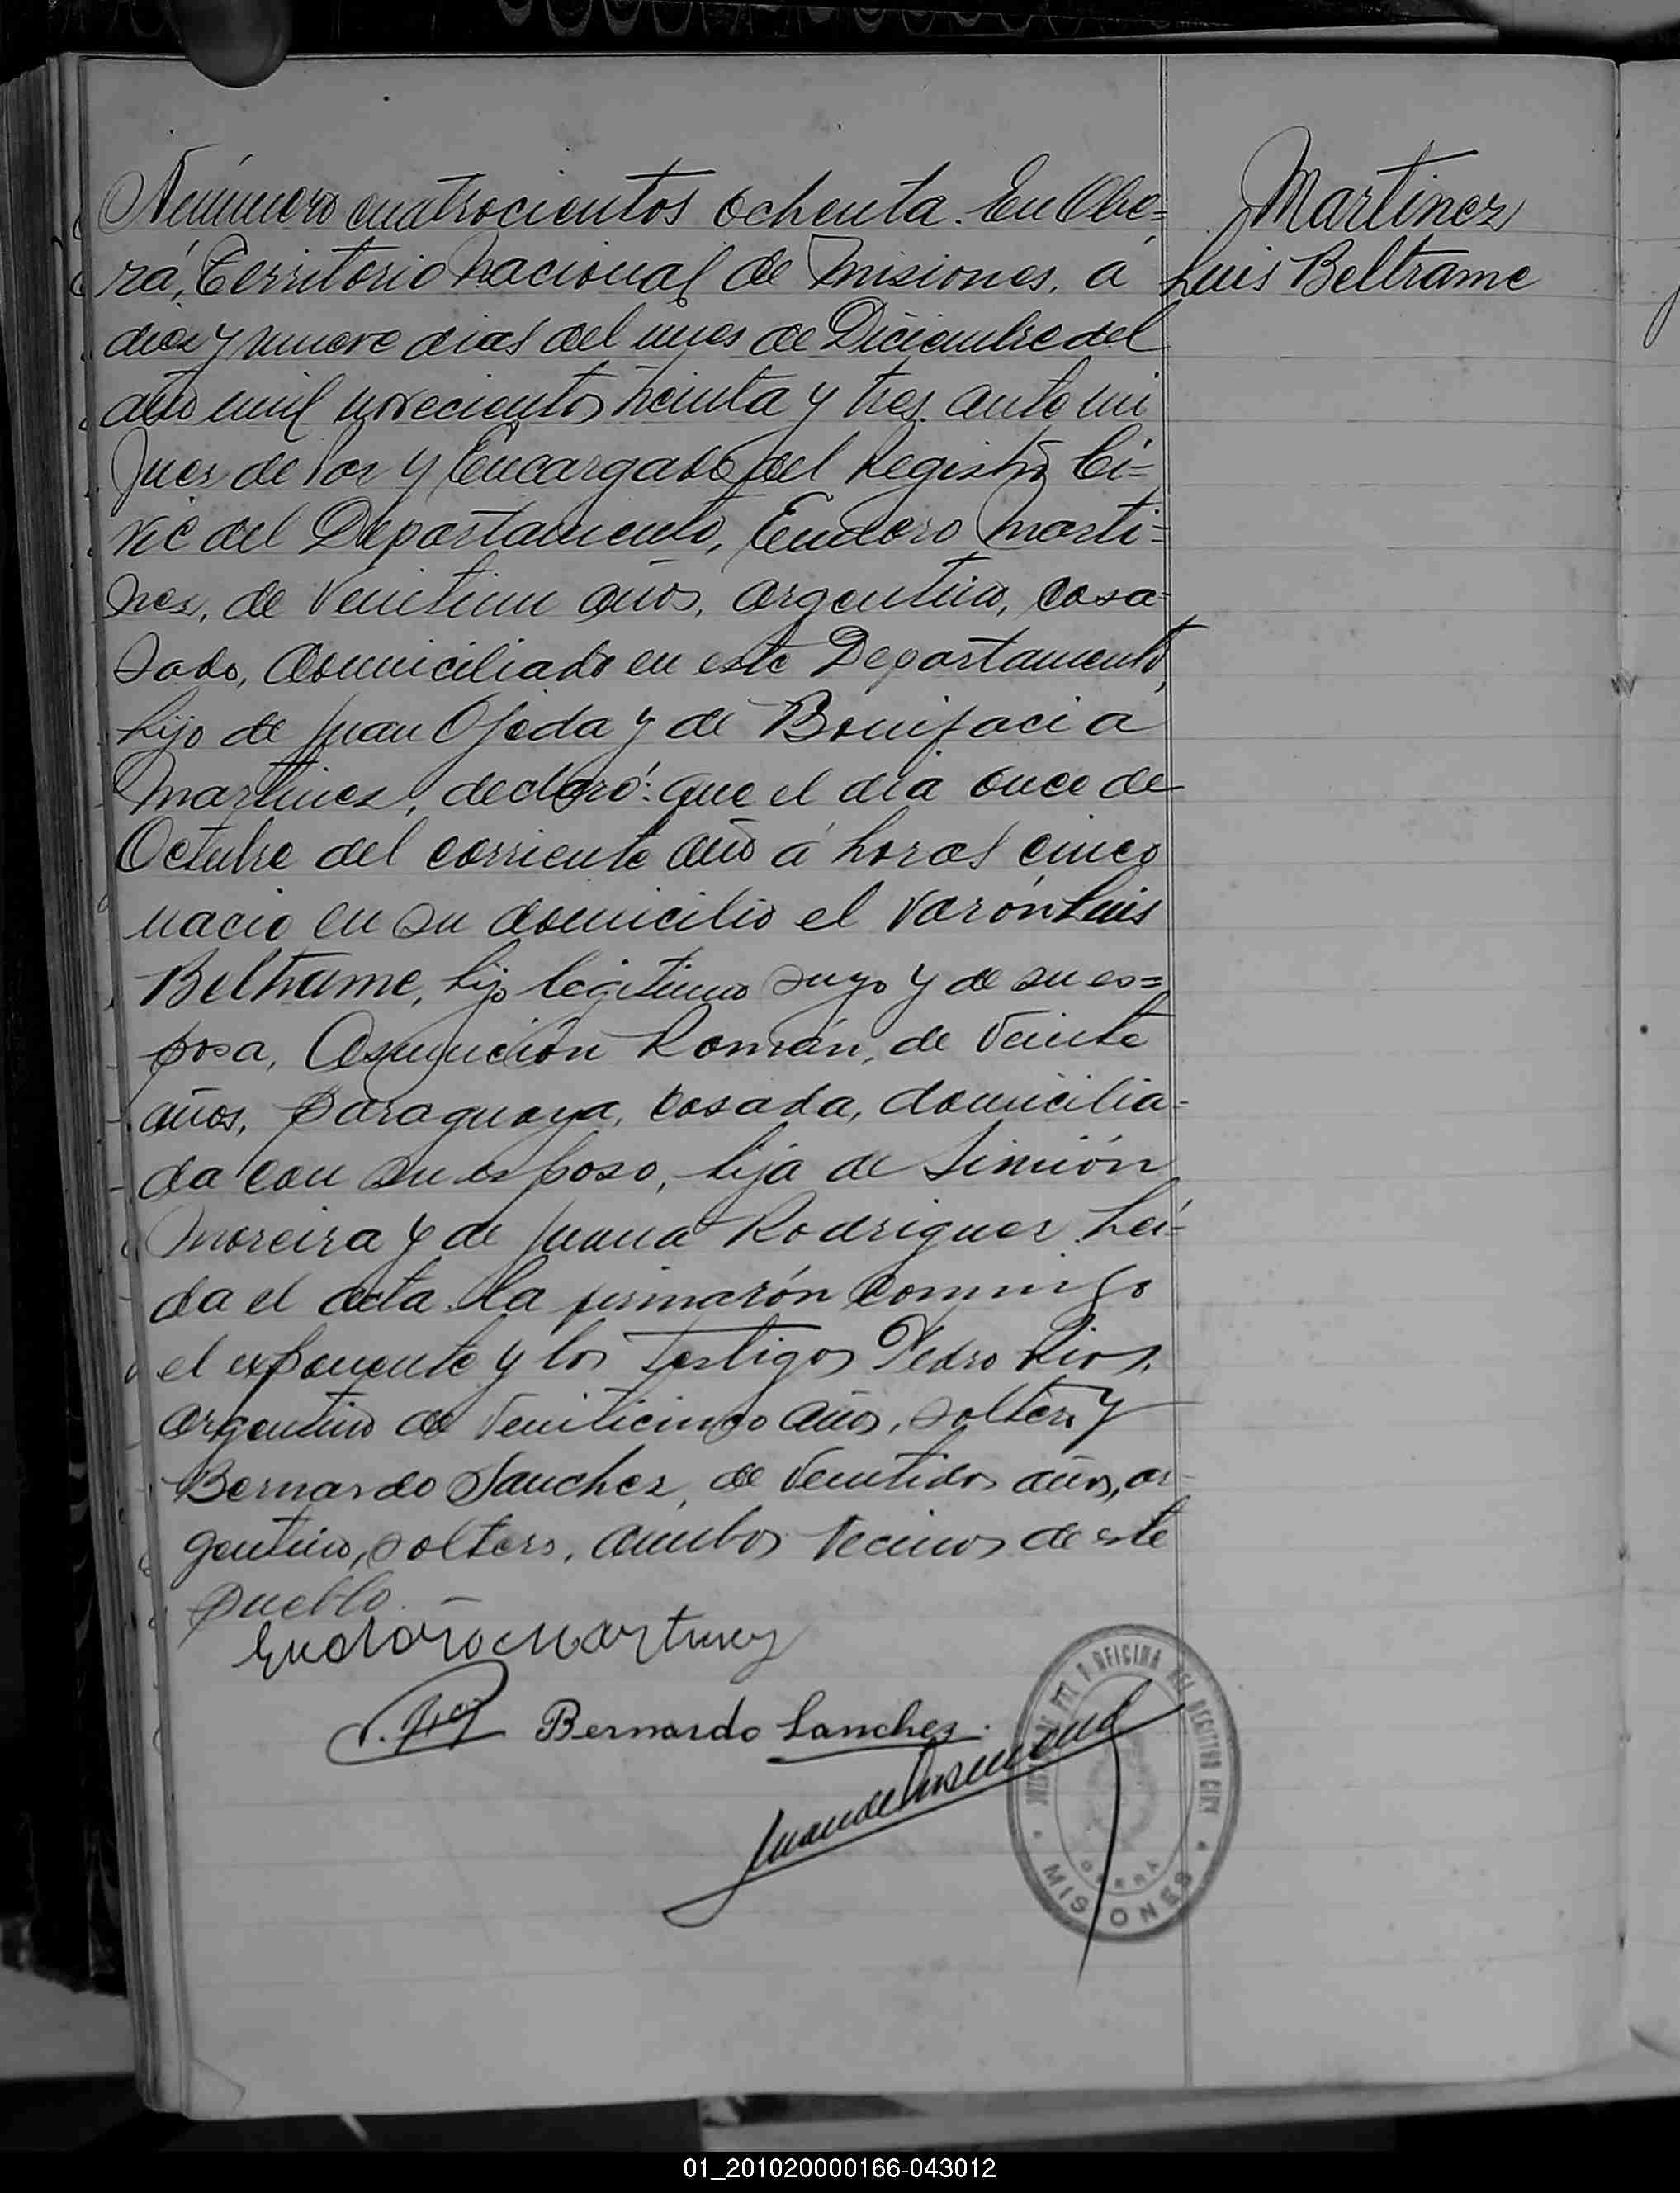 Número cuatrocientos ochenta. En Obe=
rá, Territorio Nacional de Misiones, á
diez y nueve dias del mes de Diciembre del
año mil novecientos treinta y tres, ante mi
Juez de Paz y Encargado del Registro Ci=
vic del Departamento, Eudoro Marti=
nez, de veintiun años, argentino, casa=
dado, domiciliado en este Departamento,
hijo de Juan Ojeda y de Bonifacia
Martinez, declaró: que el día once de
Octubre del corriente año á horas cinco
nacio en su domicilio el varón Luis
Beltrame, hijo legitimo suyo y de su es=
posa, Asunción Román, de veinte
años, paraguaya, casada, domicilia=
da con su esposo, hija de Simión
Moreira y de Juana Rodriguez. Lei=
da el acta la firmarón conmigo
el exponente y los testigos Pedro Rios,
argentino de veinticinco años, soltero y
Bernardo Sanchez, de veintidos años, ar
gentino, soltero, ambos vecinos de este
pueblo.
Martinez
Luis Beltrame
Eudoro Martinez
Bernardo Sanchez.
OFICINA DEL REGISTRO CIVI
OBERÁ
MISIONES
01_201020000166-043012